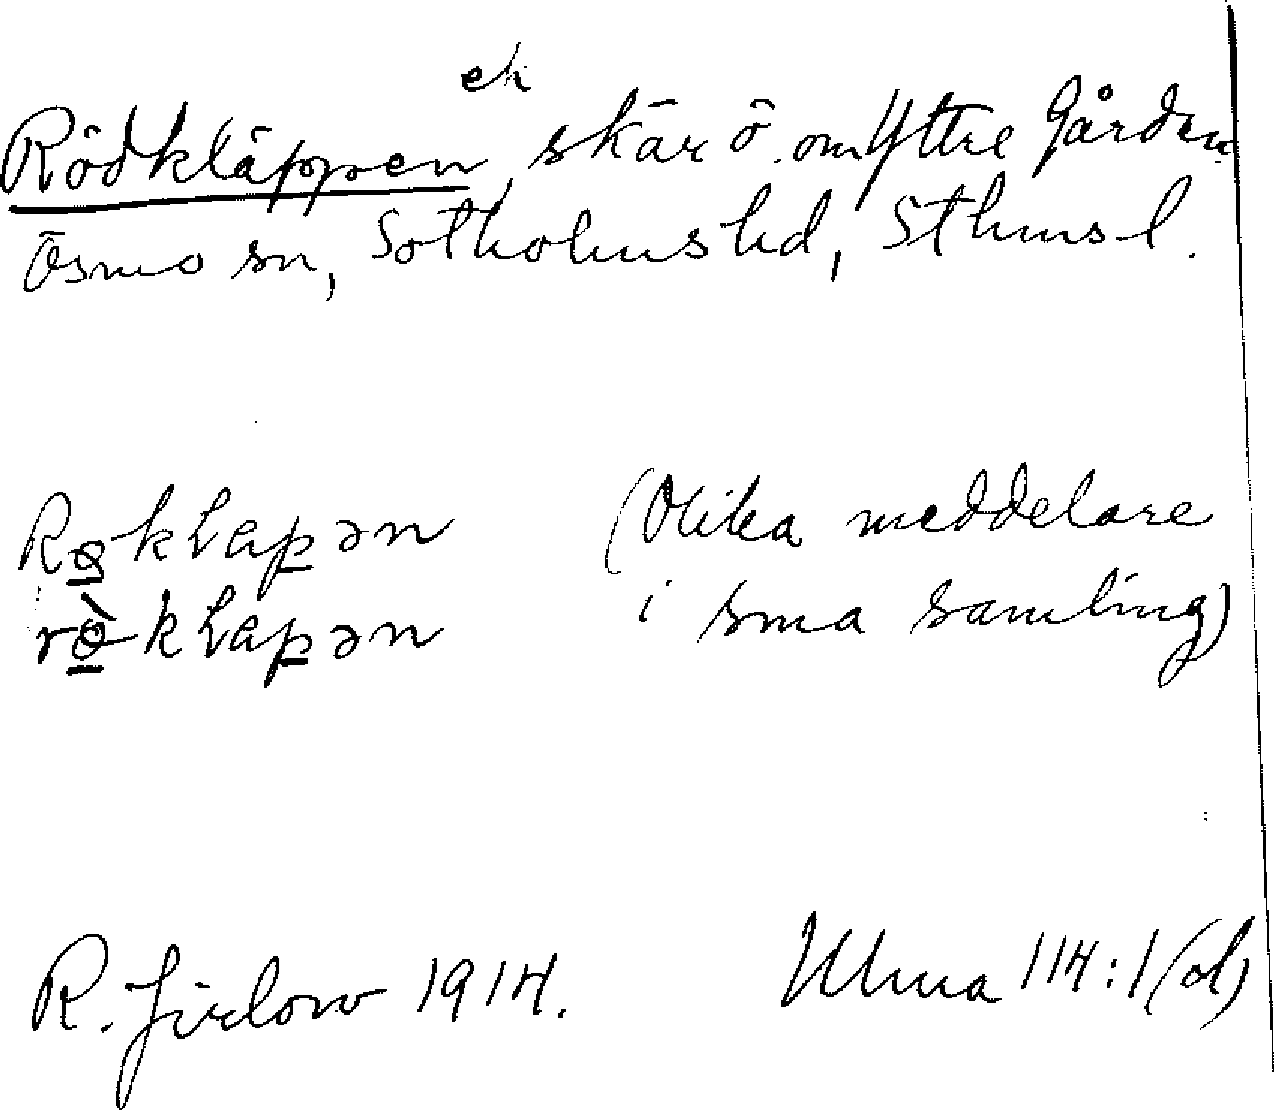 ek
Rödkläppen, skär ö. om Yttre Gården
Ösmo sn, Sotholms hd, Sthms l.
RøkLapən (Olika meddelare
rø̀kLapən i sma samling)
R. Jirlow 1914. Ulma 114:1(d)